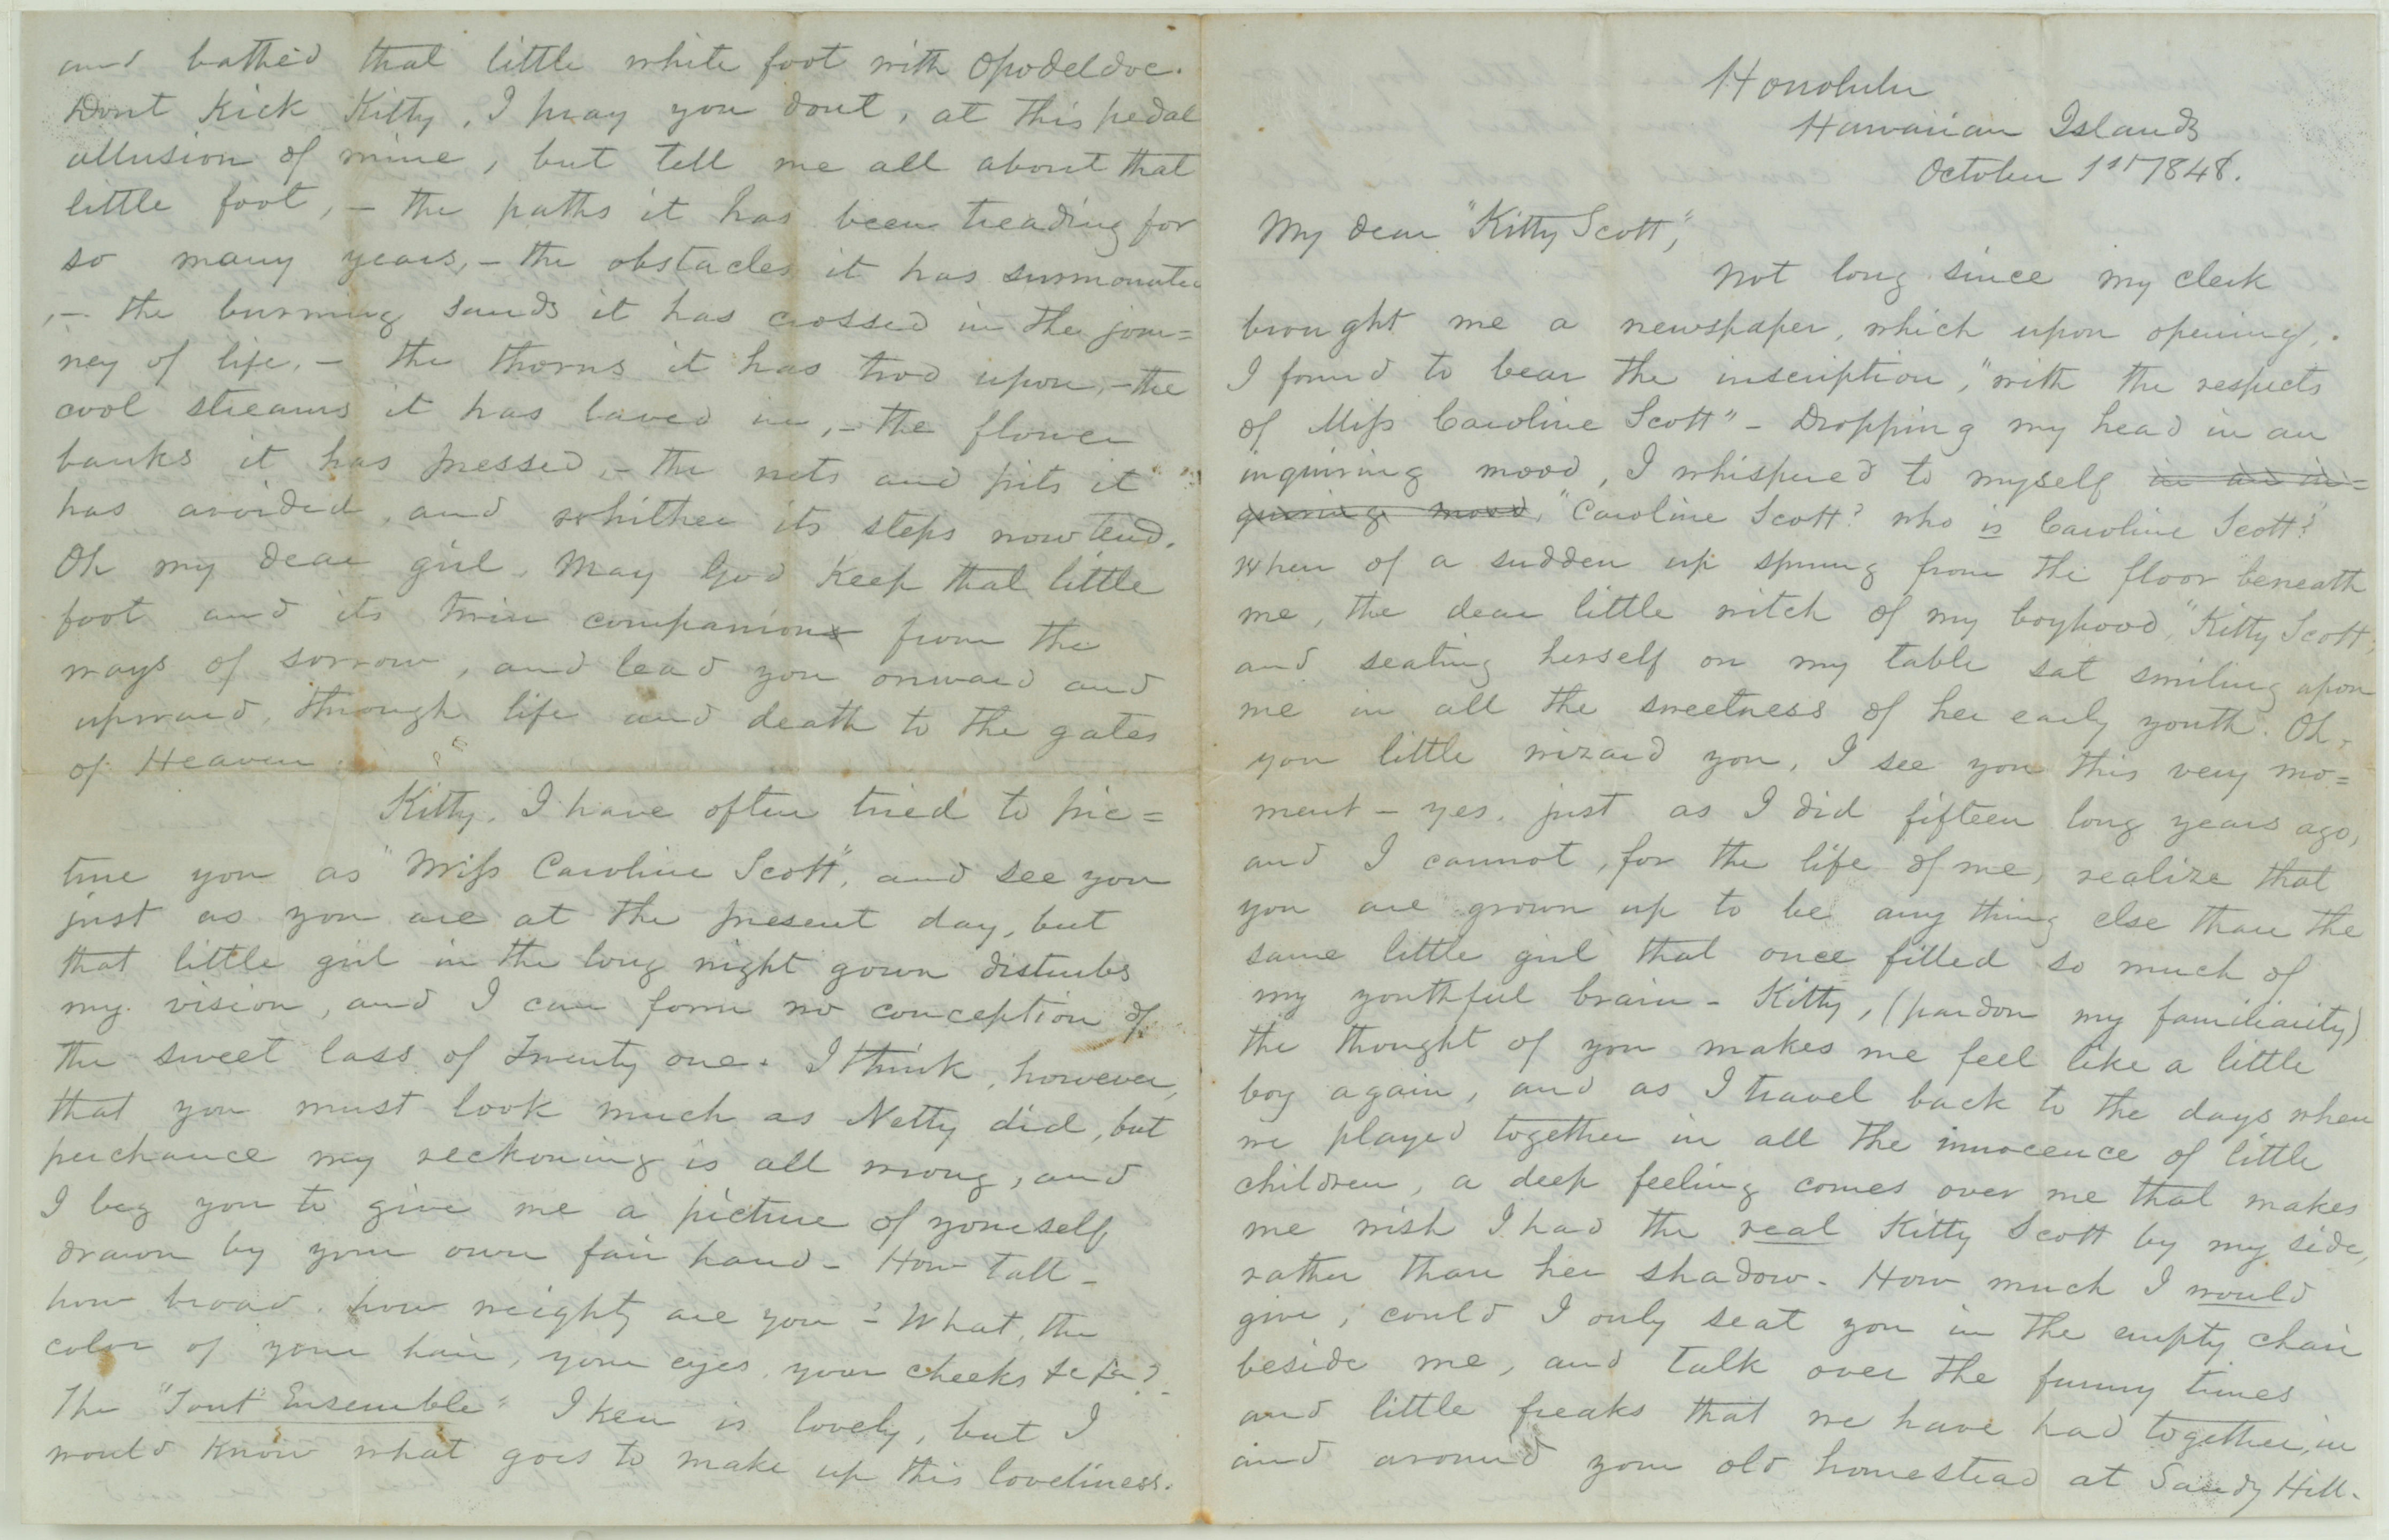 Honolulu
Hawaiian Islands
October 1st 1848.
My dear "Kitty Scott",
Not long since my clerk
brought me a newspaper, which upon opening,
I found to bear the inscription, "with the respects
of Miss Caroline Scott" - Dropping my head in an
inquiring mood, I whispered to myself in an in=
quiring mood, "Caroline Scott? who is Caroline Scott?"
When of a sudden up sprung from the floor beneath
me, the dear little witch of my boyhood, "Kitty Scott,"
and seating herself on my table sat smiling upon
me in all the sweetness of her early youth. Oh,
you little wizard you, I see you this very mo=
ment - yes, just as I did fifteen long years ago,
and I cannot, for the life of me, realize that
you are grown up to be any thing else than the
same little girl that once filled so much of
my youthful brain - Kitty, (pardon my familiarity)
the thought of you makes me feel like a little
boy again, and as I travel back to the days when
we played together in all the innocence of little
children, a deep feeling comes over me that makes
me wish I had the real Kitty Scott by my side,
rather than her shadow. How much I would
give, could I only seat you in the empty chair
beside me, and talk over the funny times
and little freaks that we have had together, in
and around your old homestead at Sandy Hill.
and bathed that little white foot with Opodeldoc.
Dont kick Kitty, I pray you dont, at this pedal
allusion of mine, but tell me all about that
little foot, - the paths it has been treading for
so many years, - the obstacles it has surmounted
, - the burning sands it has crossed in the jour=
ney of life, - the thorns it has trod upon, - the
cool streams it has laved in, - the flower
banks it has pressed, - the nets and pits it
has avoided, and whither its steps now tend.
Oh my dear girl, May God keep that little
foot and its twin companion from the
ways of sorrow, and lead you onward and
upward, through life and death to the gates
of Heaven.
Kitty, I have often tried to pic=
ture you as "Miss Caroline Scott", and see you
just as you are at the present day, but
that little girl in the long night gown disturbs
my vision, and I can form no conception of
the sweet lass of Twenty one. I think, however,
that you must look much as Netty did, but
perchance my reckoning is all wrong, and
I beg you to give me a picture of yourself
drawn by your own fair hand - How tall -
how broad, how weighty are you? What, the
color of your hair, your eyes, your cheeks &c &c?
The "Tout Ensemble" I ken is lovely, but I
would know what goes to make up this loveliness.